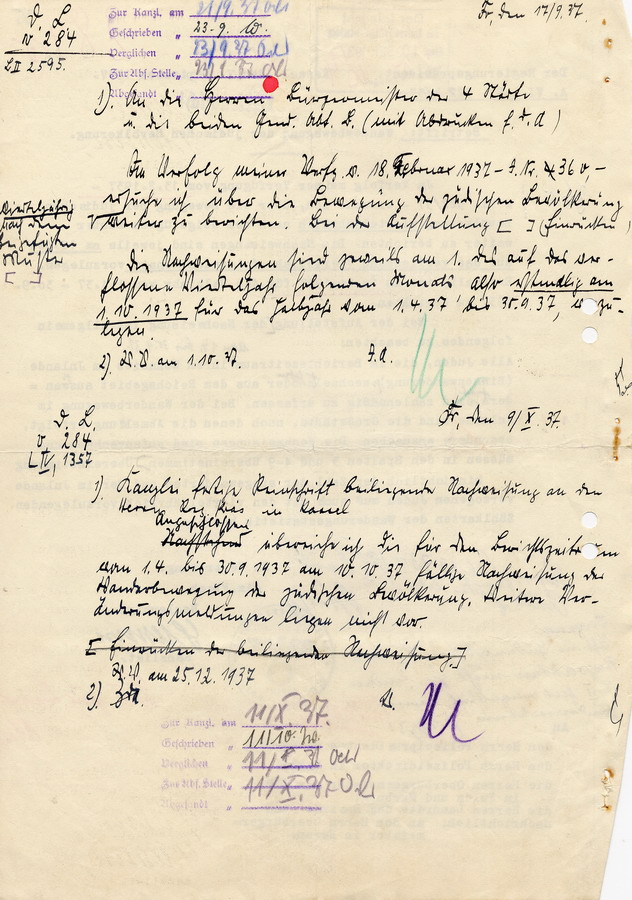 D. L.
v 284
L II 2595.
Zur Kanzl. am 21/9. 37 Och
Geschrieben „ 23.9. W.
Verglichen „ 23/9. 37 Och
Zur Abs. Stelle „ 23/9. 37 Och
Abgesandt
Fr, den 17/9. 37.
1). An die Herren Bürgermeister der 4 Städte
u. die beiden Gend. Abt. L. (mit Abdrucken f. d. A)
Im Verfolg meiner Verfg. v. 18. Februar 1937 – I. Nr. 360, –
ersuche ich über die Bewegung der jüdischen Bevölkerung
vierteljährig
nach dem
beigefügten
Muster
[ ]
weiter zu berichten. Bei der Aufstellung [ ] (Einrücken)
Die Nachweisungen sind jeweils am 1. des auf das ver-
flossene Vierteljahr folgenden Monats also erstmalig am
1.10.1937 für das Halbjahr vom 1.4.37 bis 30.9.37, vorzu-
legen.
2) W.V. am 1.10.37. I.A.
D. L.
v. 284
L IV, 1357
Fr, den 9/X. 37.
1). Kanzlei fertige Reinschrift beiliegende Nachweisung an den
Herrn Reg. Präs. in Kassel
Angeschlossen
überreiche ich die für den Berichtszeitraum
vom 1.4. bis 30.9.1937 am 10.10.37 fällige Nachweisung der
Wanderbewegung der jüdischen Bevölkerung. Weitere Ver-
änderungsmeldungen liegen nicht vor.
[ Einrücken der beiliegenden Nachweisung. ]
W.V. am 25.12.1937
2).
Zur Kanzl. am 11/X. 37.
Geschrieben „ 11/10.
Verglichen „ 11/X 37 Och
Zur Abs. Stelle „ 11/X. 37 Och
Abgesandt „